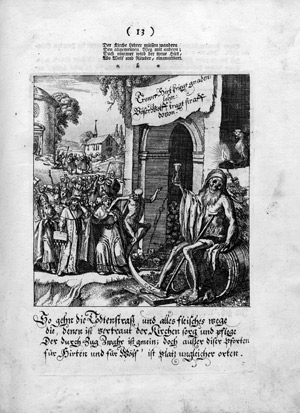 ( 13 )
Der Kirche führer müssen wandern
Den allgemeinen Weg mit andern;
Doch nimmer wird der treue Hirt,
Wo Wolf und Räuber,
Trewer Hirt tregt gnaden
lohn:
Böser tregt straffe
davon.
So gehn die Todtenstraß, und alles fleisches wege
die, denen ist vertraut der Kirchen sorg und pflege
Der durch-Zug Zwahr ist gmein; doch ausser diser Pforten
für Hirten und für Wölf' ist plaz ungleicher orten.